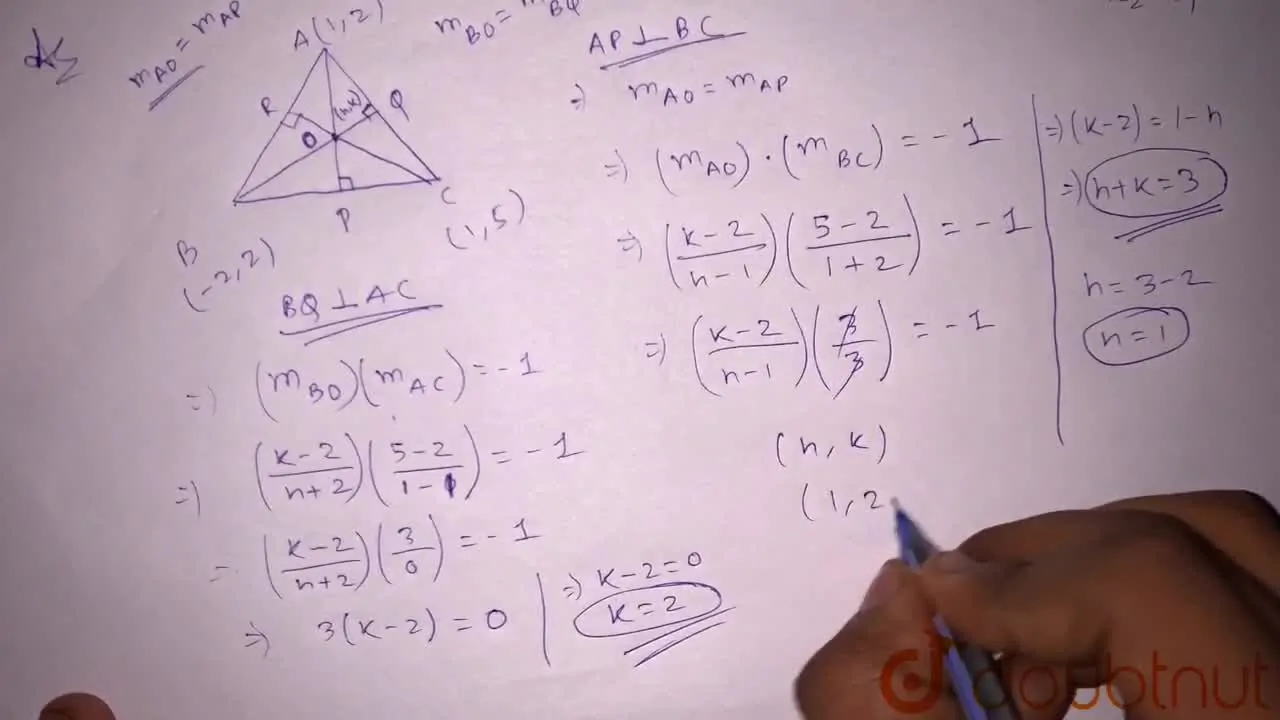 m_AO = m_AP
A(1,2)
R
O
(h,k)
Q
P
C
(1,5)
B
(-2,2)
BQ ⊥ AC
⇒ (m_BO)(m_AC) = -1
⇒ ((k-2)/(h+2))((5-2)/(1-1)) = -1
= ((k-2)/(h+2))(3/0) = -1
⇒ 3(k-2) = 0
⇒ k-2=0
k=2
m_BO = m_BQ
AP ⊥ BC
⇒ m_AO = m_AP
⇒ (m_AO)·(m_BC) = -1
⇒ ((k-2)/(h-1))((5-2)/(1+2)) = -1
⇒ ((k-2)/(h-1))(3/3) = -1
(h, k)
(1, 2
⇒ (k-2) = 1-h
⇒ h+k=3
h=3-2
h=1
doubtnut